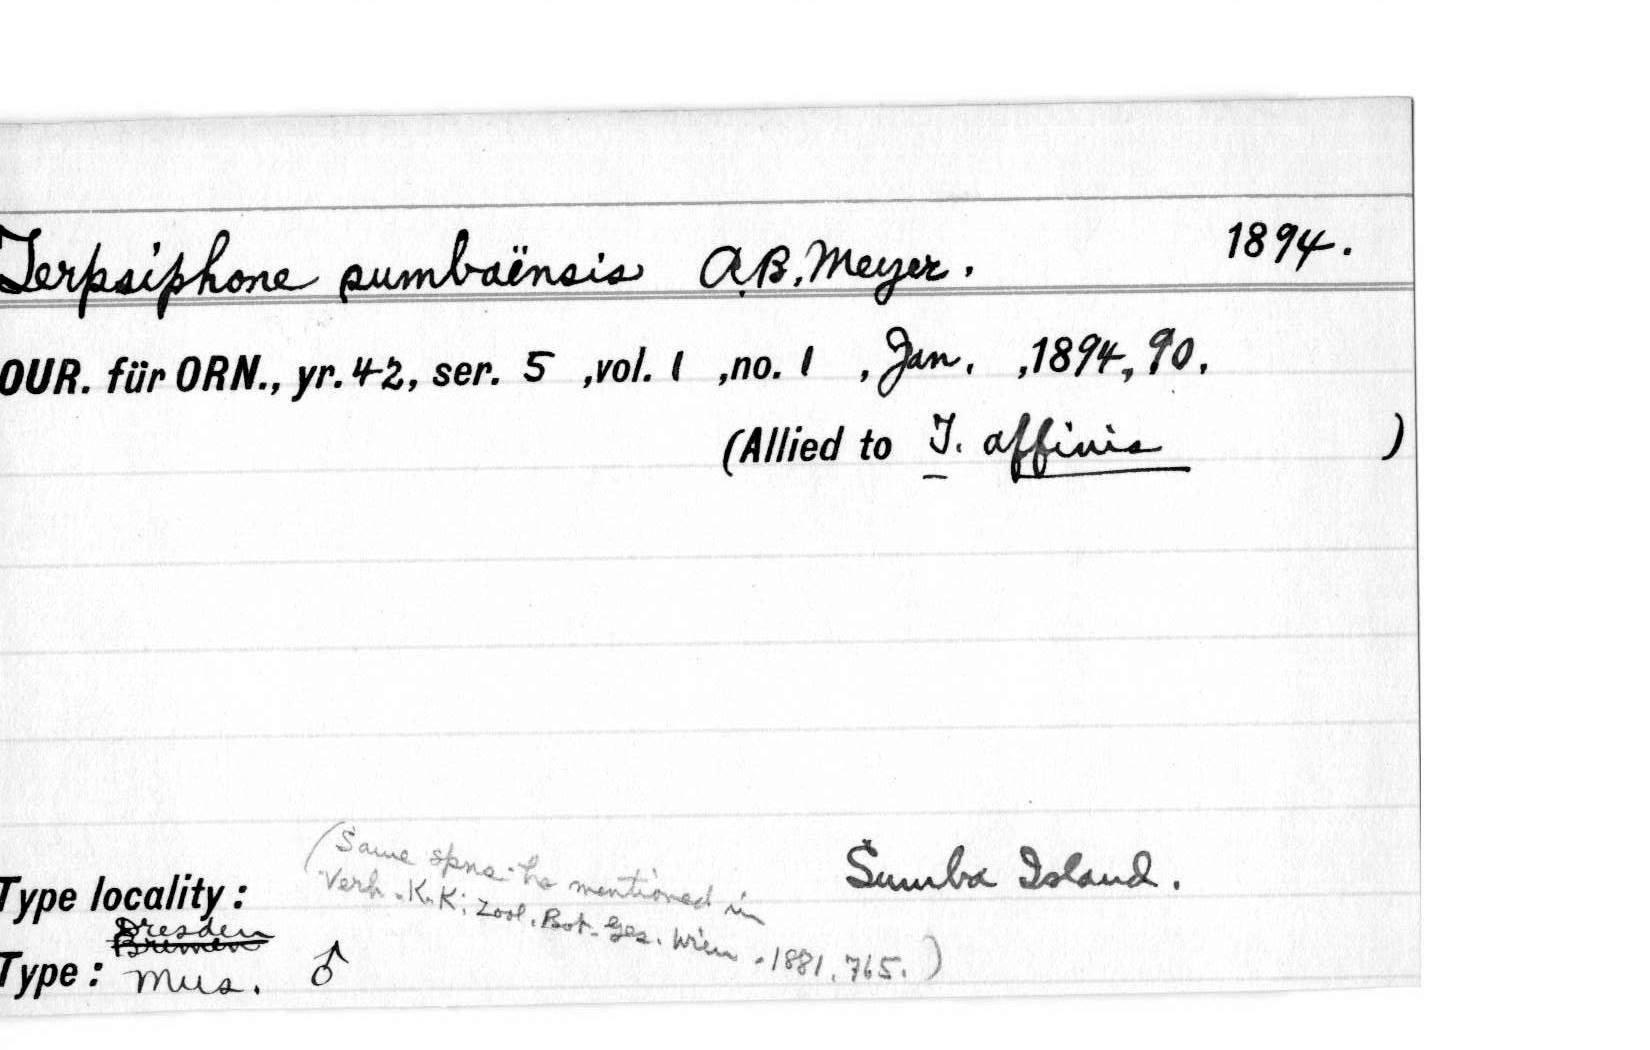 Terpsiphone sumbaënsis A.B. Meyer. 1894.
OUR. für ORN., yr. 42, ser. 5 ,vol. 1 ,no. 1 , Jan. ,1894, 90.
(Allied to T. affinis )
(Same spns. he mentioned in
Verh. K.K. Zool. Bot. Ges. Wien. 1881, 765.)
Type locality: Sumba Island.
Dresden
Bremen
Type: Mus. ♂